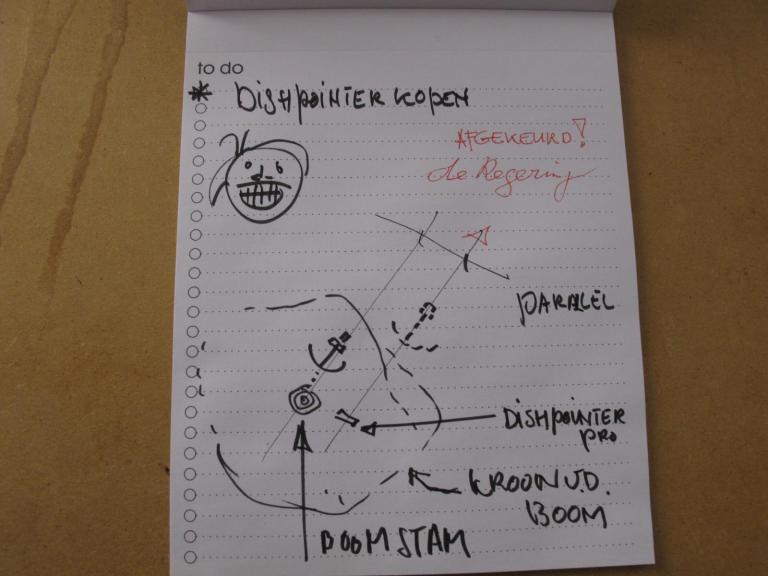 to do
* DishpoiNTER KopEN
AFGEKEURD!
de Regering
PARALLEL
DishpoiNTER
pRo
KROON V.D.
BOOM
BOOMSTAM